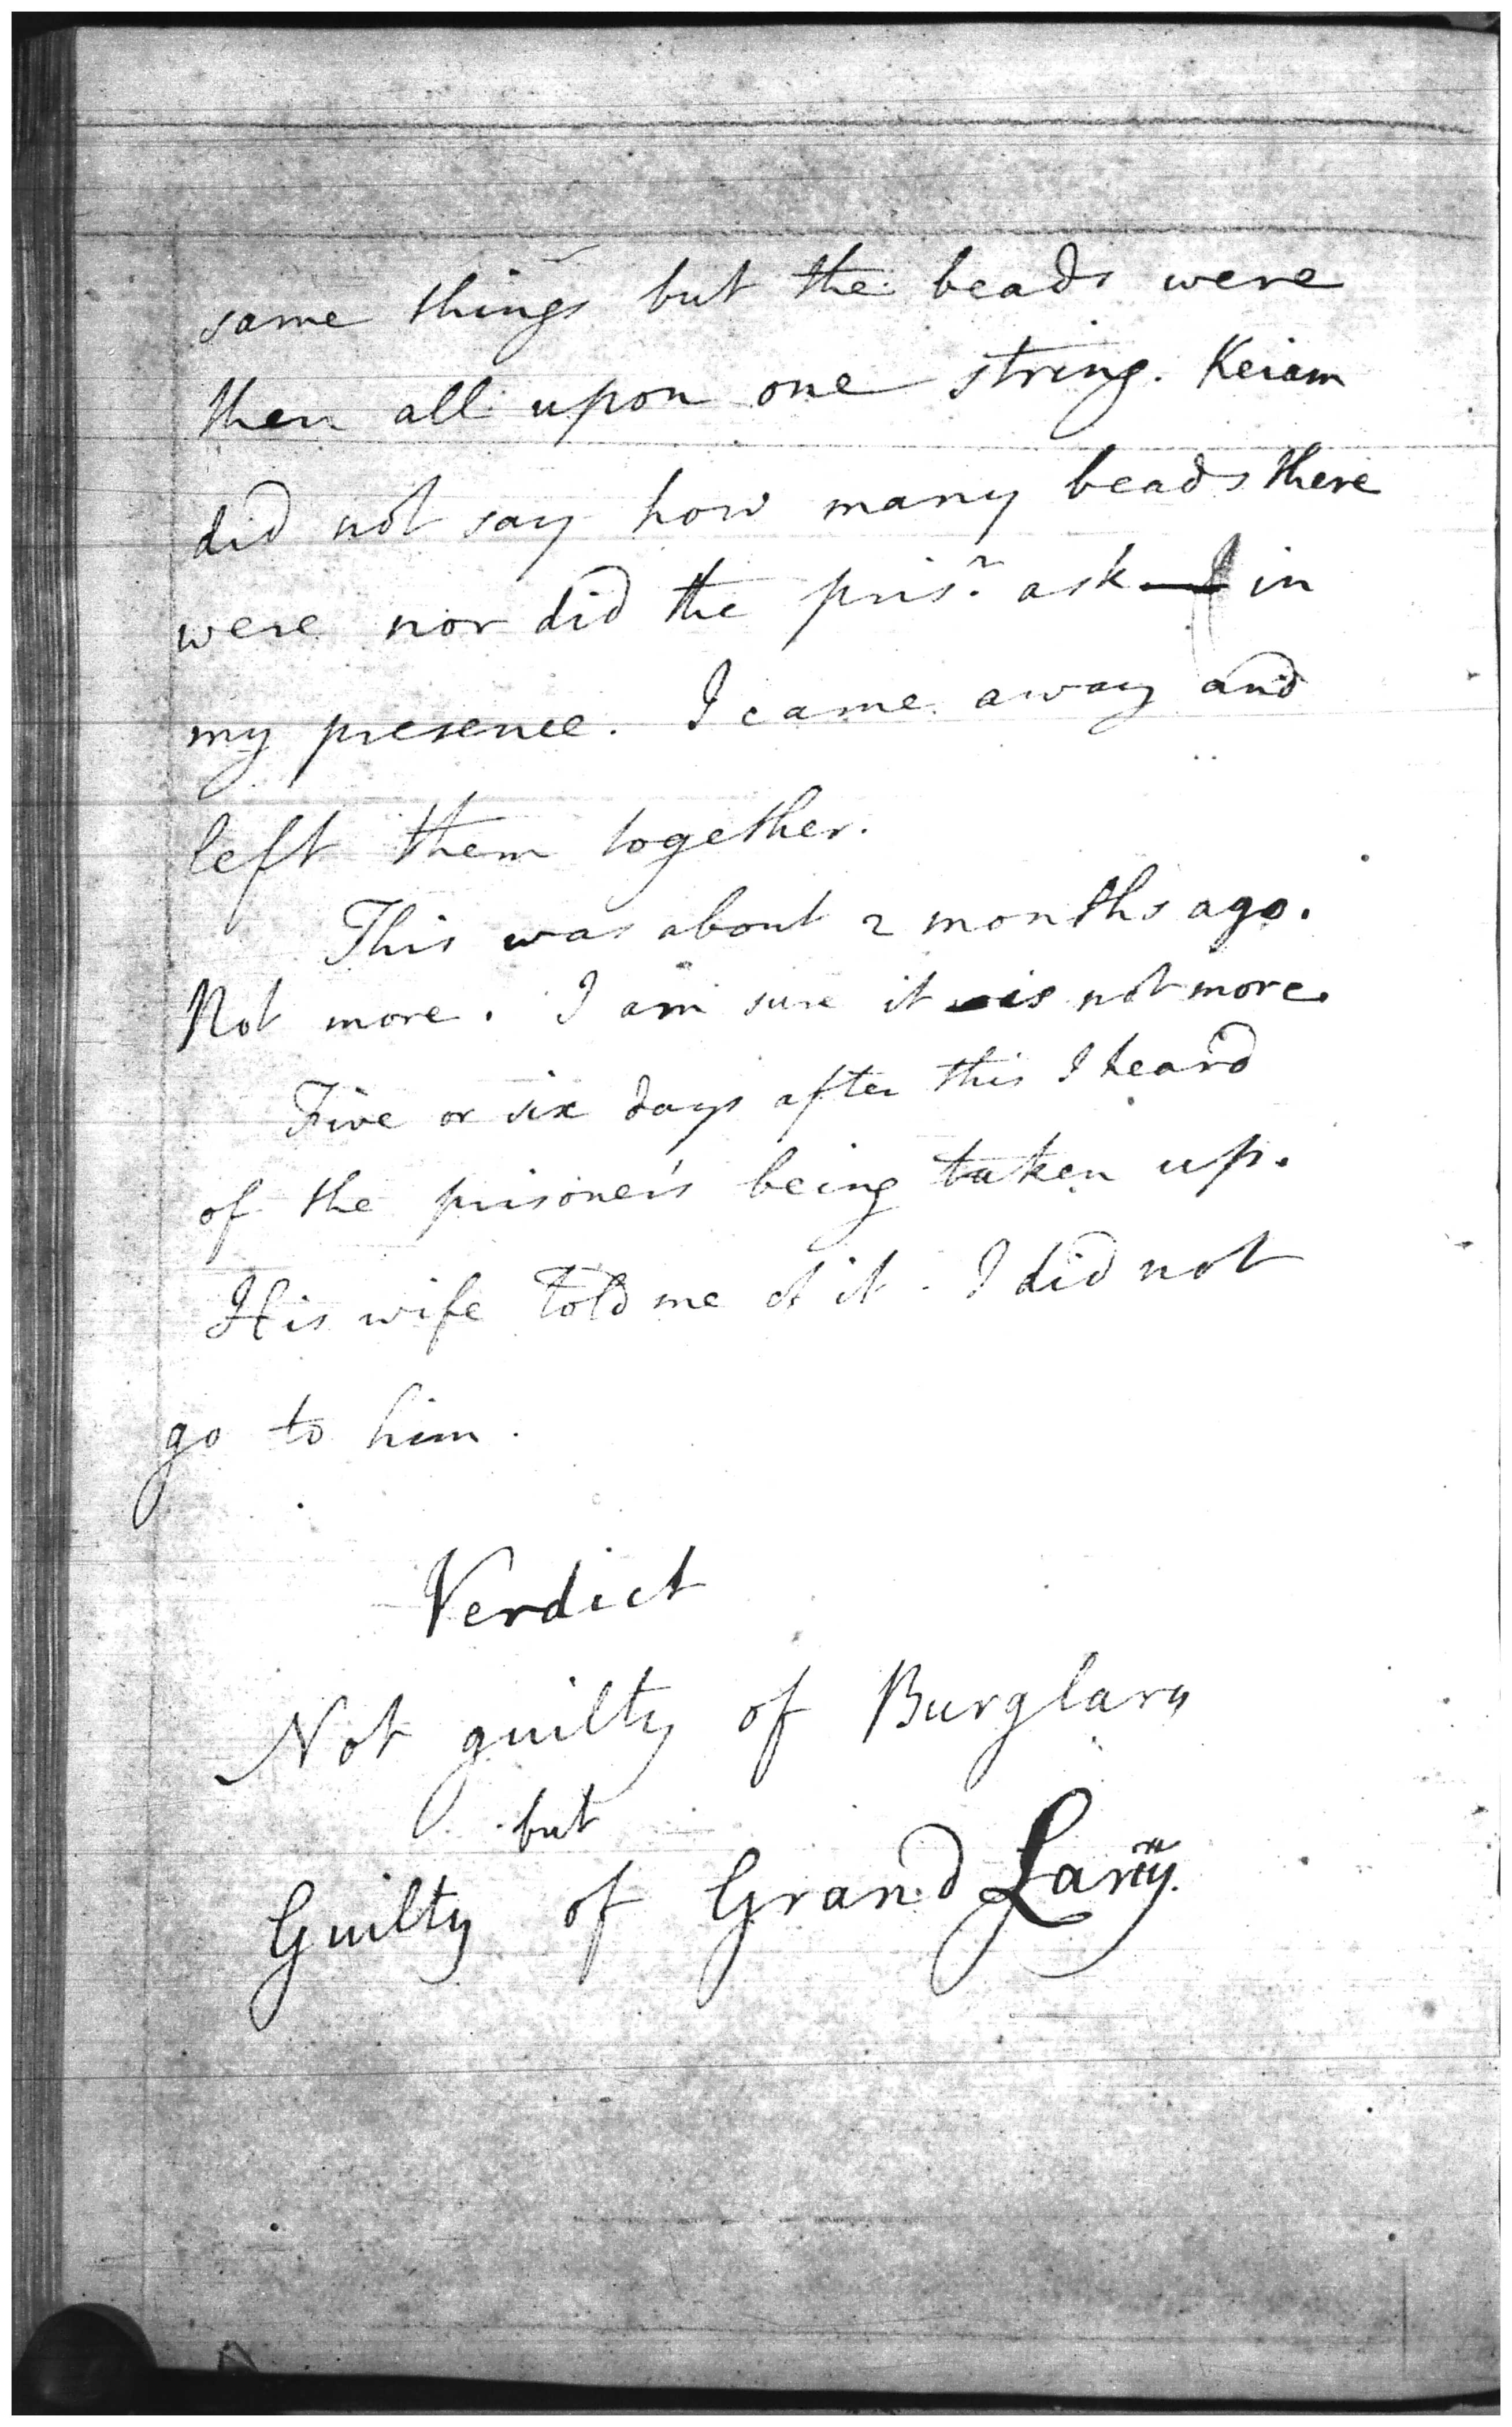 same things but the beads were
then all upon one string. Keiam
did not say how many beads there
were nor did the prisr. ask in
my presence. I came away and
left them together.
This was about 2 months ago.
Not more. I am sure it is not more.
Five or six days after this I heard
of the prisoner's being taken up.
His wife told me of it. I did not
go to him.
Verdict
Not guilty of Burglary
but
Guilty of Grand